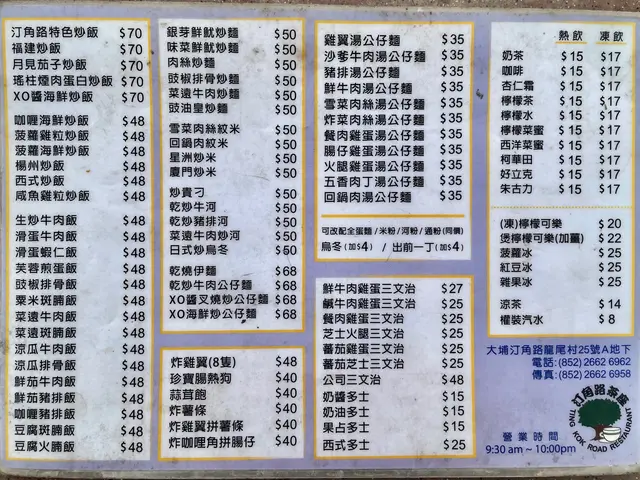 汀角路特色炒飯 $70
福建炒飯 $70
月見茄子炒飯 $70
瑤柱煙肉蛋白炒飯 $70
XO醬海鮮炒飯 $70
咖喱海鮮炒飯 $48
菠蘿雞粒炒飯 $48
菠蘿海鮮炒飯 $48
楊州炒飯 $48
西式炒飯 $48
咸魚雞粒炒飯 $48
生炒牛肉飯 $48
滑蛋牛肉飯 $48
滑蛋蝦仁飯 $48
芙蓉煎蛋飯 $48
豉椒排骨飯 $48
粟米斑腩飯 $48
菜遠牛肉飯 $48
菜遠斑腩飯 $48
涼瓜牛肉飯 $48
涼瓜排骨飯 $48
鮮茄牛肉飯 $48
鮮茄豬排飯 $48
咖喱豬排飯 $48
豆腐斑腩飯 $48
豆腐火腩飯 $48
銀芽鮮魷炒麵 $50
味菜鮮魷炒麵 $50
肉絲炒麵 $50
豉椒排骨炒麵 $50
菜遠牛肉炒麵 $50
豉油皇炒麵 $50
雪菜肉絲炆米 $50
回鍋肉炆米 $50
星洲炒米 $50
廈門炒米 $50
炒貴刁 $50
乾炒牛河 $50
乾炒豬排河 $50
菜遠牛肉炒河 $50
日式炒烏冬 $60
乾燒伊麵 $68
乾炒牛肉公仔麵 $68
XO醬叉燒炒公仔麵 $68
XO海鮮炒公仔麵 $68
炸雞翼(8隻) $48
珍寶腸熱狗 $40
蒜茸飽 $40
炸薯條 $40
炸雞翼拼薯條 $40
炸咖喱角拼腸仔 $40
雞翼湯公仔麵 $35
沙爹牛肉湯公仔麵 $35
豬排湯公仔麵 $35
鮮牛肉湯公仔麵 $35
雪菜肉絲湯公仔麵 $35
炸菜肉絲湯公仔麵 $35
餐肉雞蛋湯公仔麵 $35
腸仔雞蛋湯公仔麵 $35
火腿雞蛋湯公仔麵 $35
五香肉丁湯公仔麵 $35
回鍋肉湯公仔麵 $35
可改配全蛋麵/米粉/河粉/通粉(同價)
烏冬(加$4) / 出前一丁(加$4)
鮮牛肉雞蛋三文治 $27
鹹牛肉雞蛋三文治 $25
餐肉雞蛋三文治 $25
芝士火腿三文治 $25
蕃茄雞蛋三文治 $25
蕃茄芝士三文治 $25
公司三文治 $48
奶醬多士 $15
奶油多士 $15
果占多士 $15
西式多士 $25
熱飲 凍飲
奶茶 $15 $17
咖啡 $15 $17
杏仁霜 $15 $17
檸檬茶 $15 $17
檸檬水 $15 $17
檸檬菜蜜 $15 $17
西洋菜蜜 $15 $17
柯華田 $15 $17
好立克 $15 $17
朱古力 $15 $17
(凍)檸檬可樂 $20
煲檸檬可樂(加薑) $22
菠蘿冰 $25
紅豆冰 $25
雜果冰 $25
涼茶 $14
權裝汽水 $8
大埔汀角路龍尾村25號A地下
電話:(852) 2662 6962
傳真:(852) 2662 6958
汀角路茶座
TING KOK ROAD RESTAURANT
營業時間
9:30 am ~ 10:00pm